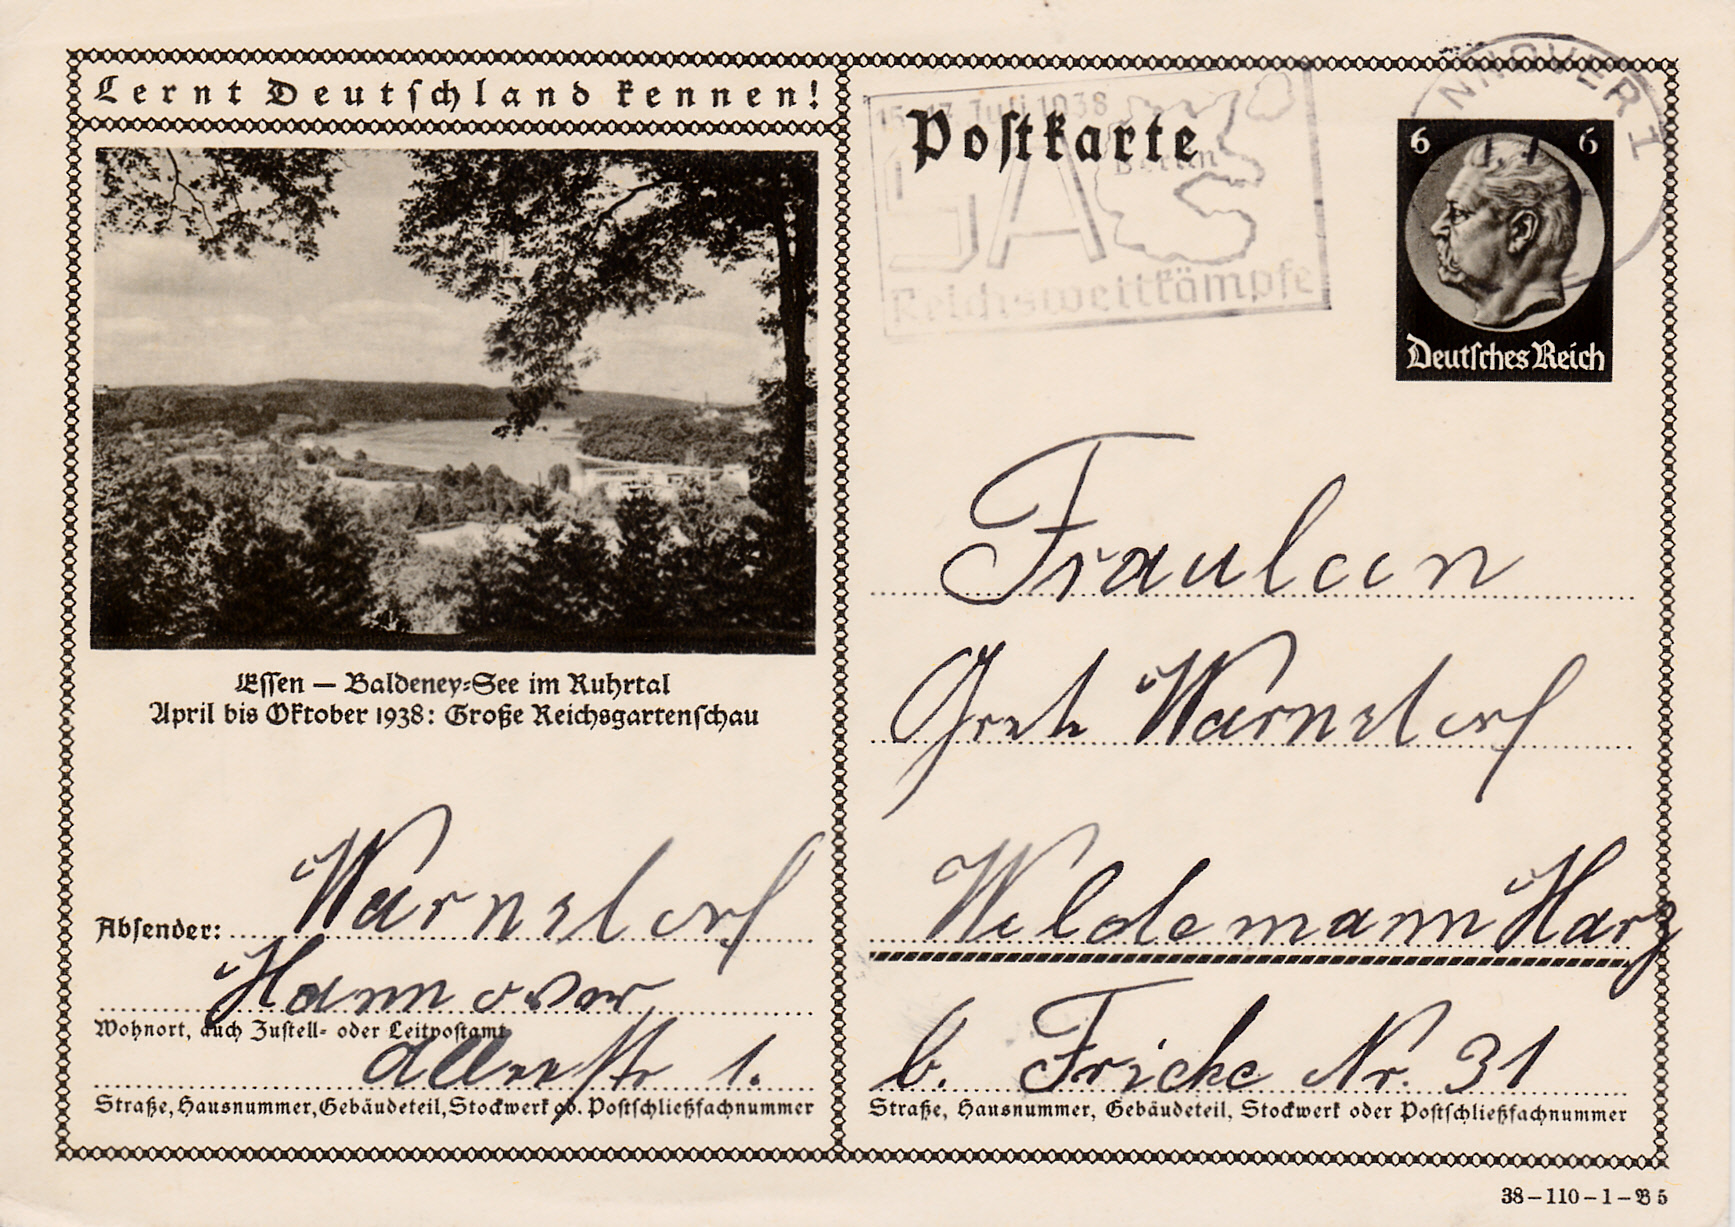 Lernt Deutschland kennen!
Essen – Baldeney-See im Ruhrtal
April bis Oktober 1938: Große Reichsgartenschau
Absender: Warnstorf
Hannover
Wohnort, auch Zustell- oder Leitpostamt
Allerstr 1.
Straße, Hausnummer, Gebäudeteil, Stockwerk od. Postschließfachnummer
Postkarte
15.-17. Juli 1938
Berlin
SA
Reichswettkämpfe
NNOVER 1
6 6
Deutsches Reich
Fräulein
Grete Warnstorf
Wildemann Harz
b. Fricke Nr. 31
Straße, Hausnummer, Gebäudeteil, Stockwerk oder Postschließfachnummer
38–110–1–B 5